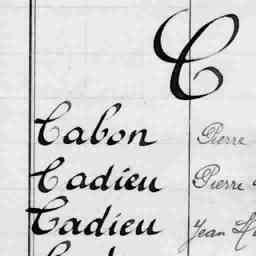 C
Cabon Pierre
Cadieu Pierre
Cadieu Jean